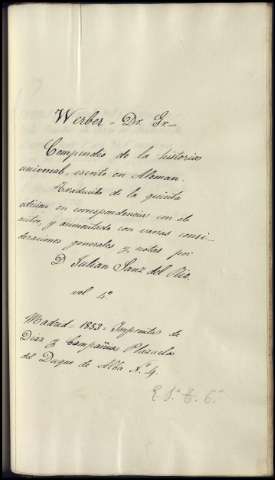 Werber - Dr. Gr -
Compendio de la historia
universal, escrito en Aleman.
Traducido de la quinta
edicion en correspondencia con el
autor, y aumentado con varias consi-
deraciones generales y notas por
D. Julian Sanz del Rio.
vol 4º
Madrid - 1853 - Imprenta de
Diaz y Compañia Plazuela
del Duque de Alba Nº. 4.